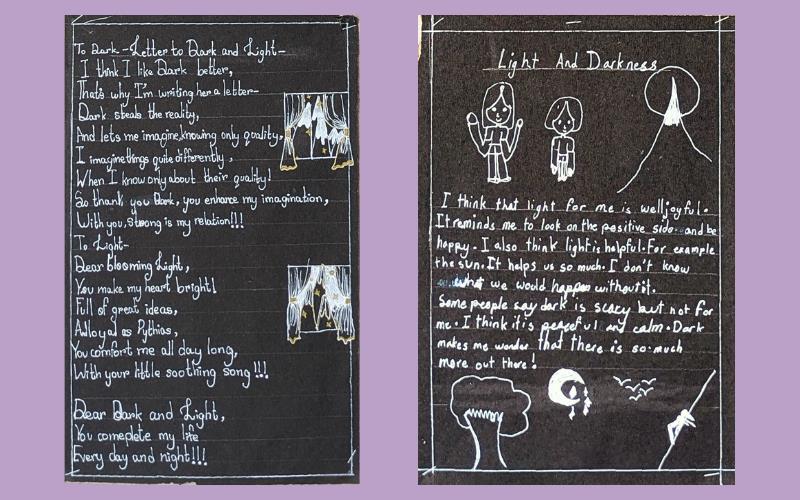 To Dark -Letter to Dark and Light-
I think I like Dark better,
That's why I'm writing her a letter-
Dark steals the reality,
And lets me imagine,knowing only quality,
I imagine things quite differently,
When I know only about their quality!
So thank you Dark, you enhance my imagination,
With you, strong is my relation!!!
To Light-
Dear blooming Light,
You make my heart bright!
Full of great ideas,
As loyal as Pythias,
You comfort me all day long,
With your little soothing song!!!
Dear Dark and Light,
You comeplete my life
Every day and night!!!
Light And Darkness
I think that light for me is well joyful.
It reminds me to look on the positive side and be
happy. I also think light is helpful. For example
the sun. It helps us so much. I don't know
what we would happen without it.
Some people say dark is scary but not for
me. I think it is peaceful any calm. Dark
makes me wonder that there is so much
more out there!